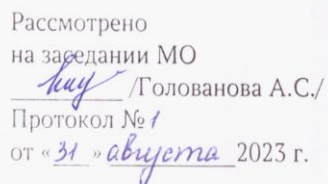 Рассмотрено
на заседании МО
/Голованова А.С./
Протокол №1
от «31» августа 2023 г.